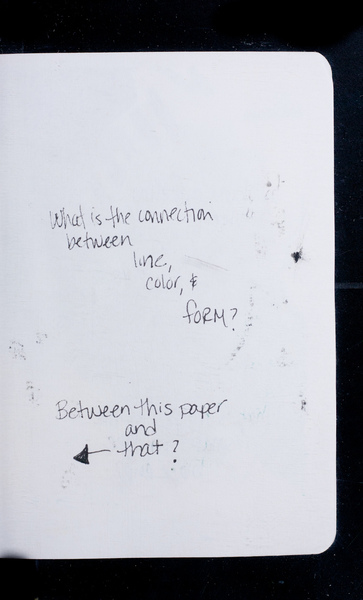 What is the connection
between
line,
color, &
form?
Between this paper
and
that?